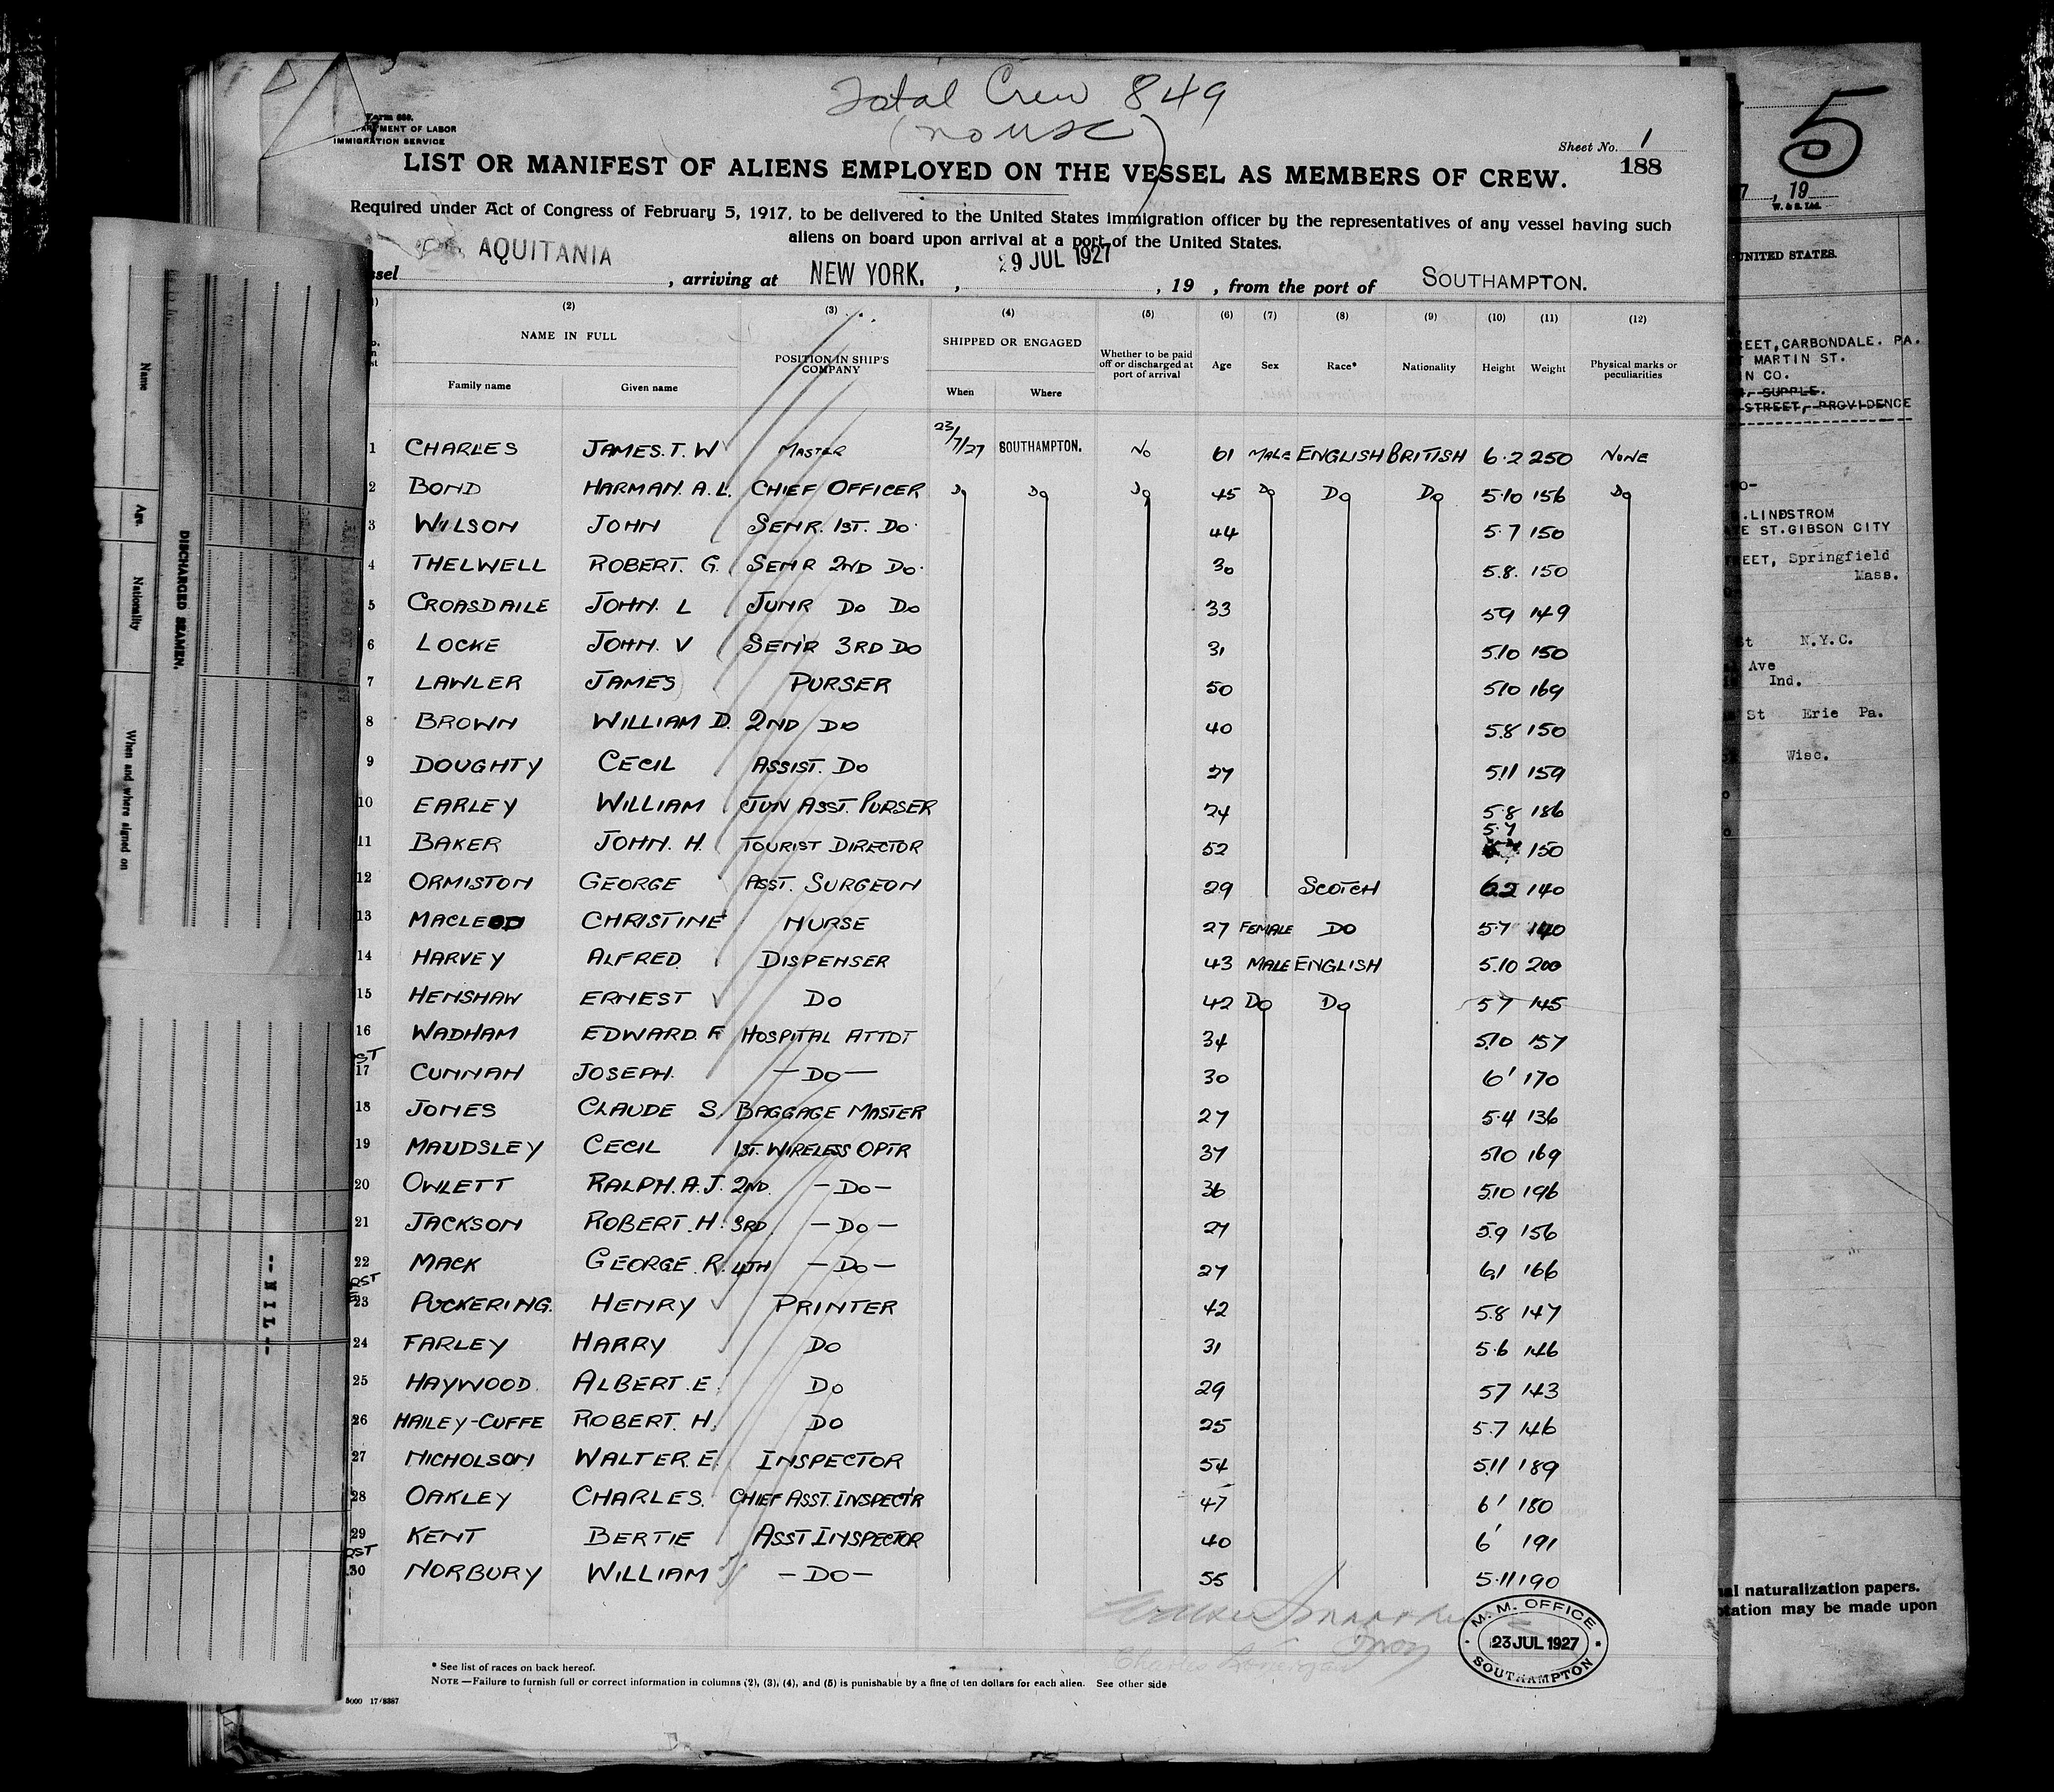 Total Crew 849
(no USC)
Form 689.
DEPARTMENT OF LABOR
IMMIGRATION SERVICE
Sheet No. 1
188
LIST OR MANIFEST OF ALIENS EMPLOYED ON THE VESSEL AS MEMBERS OF CREW.
Required under Act of Congress of February 5, 1917, to be delivered to the United States immigration officer by the representatives of any vessel having such
aliens on board upon arrival at a port of the United States.
ssel AQUITANIA, arriving at NEW YORK., 29 JUL 1927, 19 , from the port of SOUTHAMPTON.
(2) (3) (4) (5) (6) (7) (8) (9) (10) (11) (12)
NAME IN FULL POSITION IN SHIP'S COMPANY SHIPPED OR ENGAGED Whether to be paid off or discharged at port of arrival Age Sex Race* Nationality Height Weight Physical marks or peculiarities
Family name Given name When Where
1 CHARLES JAMES. T. W MASTER 23/7/27 SOUTHAMPTON. No 61 MALE ENGLISH BRITISH 6·2 250 NONE
2 BOND HARMAN. A. L. CHIEF OFFICER Do Do Do 45 Do Do Do 5·10 156 Do
3 WILSON JOHN SENR. 1ST. DO. 44 5·7 150
4 THELWELL ROBERT. G. SENR 2ND DO. 30 5.8. 150
5 CROASDAILE JOHN. L JUNR DO DO 33 59 149
6 LOCKE JOHN. V SENR 3RD DO 31 5.10 150
7 LAWLER JAMES PURSER 50 510 169
8 BROWN WILLIAM D. 2ND DO 40 5.8 150
9 DOUGHTY CECIL ASSIST. DO 27 5.11 159
10 EARLEY WILLIAM JUN ASST. PURSER 24 5·8 186
11 BAKER JOHN. H. TOURIST DIRECTOR 52 5·7 150
12 ORMISTON GEORGE ASST. SURGEON 29 SCOTCH 6.2 140
13 MACLEOD CHRISTINE NURSE 27 FEMALE DO 5·7 140
14 HARVEY ALFRED. DISPENSER 43 MALE ENGLISH 5.10 200
15 HENSHAW ERNEST DO 42 DO DO 57 145
16 WADHAM EDWARD. F HOSPITAL ATTDT 34 5.10 157
17 CUNNAH JOSEPH. —DO— 30 6' 170
18 JONES CLAUDE S. BAGGAGE MASTER 27 5·4 136
19 MAUDSLEY CECIL 1ST. WIRELESS OPTR 37 510 169
20 OWLETT RALPH. A. J. 2ND. —DO— 36 5.10 196
21 JACKSON ROBERT. H. 3RD. —DO— 27 5.9 156
22 MACK GEORGE. R. 4TH —DO— 27 6.1 166
23 PUCKERING. HENRY PRINTER 42 5.8 147
24 FARLEY HARRY DO 31 5·6 146
25 HAYWOOD. ALBERT. E. DO 29 57 143
26 HAILEY-CUFFE ROBERT. H. DO 25 5.7 146
27 NICHOLSON WALTER. E. INSPECTOR 54 5.11 189
28 OAKLEY CHARLES. CHIEF ASST. INSPECT'R 47 6' 180
29 KENT BERTIE ASST INSPECTOR 40 6' 191
30 NORBURY WILLIAM —DO— 55 5·11 190
M. M. OFFICE
23 JUL 1927
SOUTHAMPTON
* See list of races on back hereof.
NOTE—Failure to furnish full or correct information in columns (2), (3), (4), and (5) is punishable by a fine of ten dollars for each alien. See other side
5000 17/8387
Name
Age.
Nationality
When and where signed on
DISCHARGED SEAMEN.
--NIL--
5
7 , 19
W. & S. Ltd.
UNITED STATES.
REET, CARBONDALE. PA.
MARTIN ST.
IN CO.
SUPPLE.
STREET, PROVIDENCE
.LINDSTROM
ST. GIBSON CITY
REET, Springfield
Mass.
St N.Y.C.
Ave
Ind.
St Erie Pa.
Wisc.
al naturalization papers.
otation may be made upon